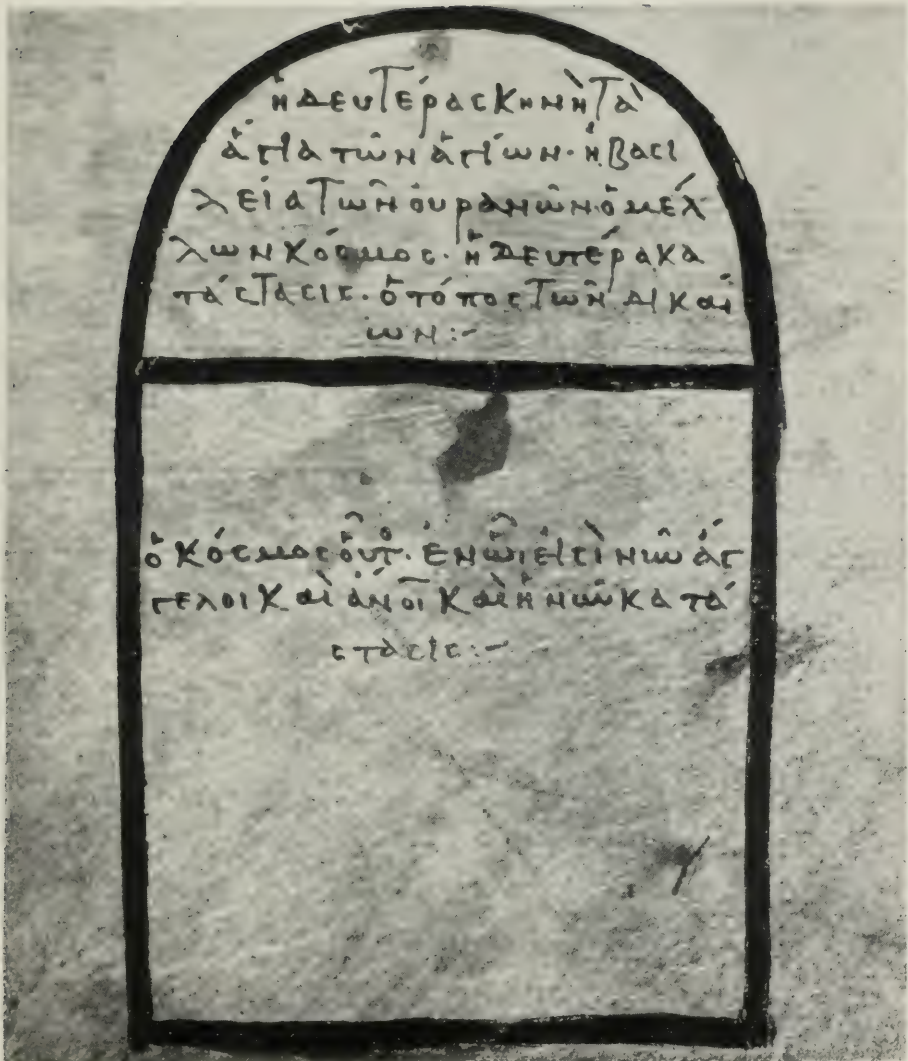 ἡ δευτέρα σκηνὴ τὰ
ἅγια τῶν ἁγίων· ἡ βασι
λεία τῶν οὐρανῶν ὁ μέλ
λων κόσμος· ἡ δευτέρα κα
τάστασις· ὁ τόπος τῶν δικαί
ων:-
ὁ κόσμος οὗτο· ἐν ὧι εἰσὶ νῦν ἄγ
γελοι καὶ ἄνοι καὶ ἡ νῦν κατά
στασις:-